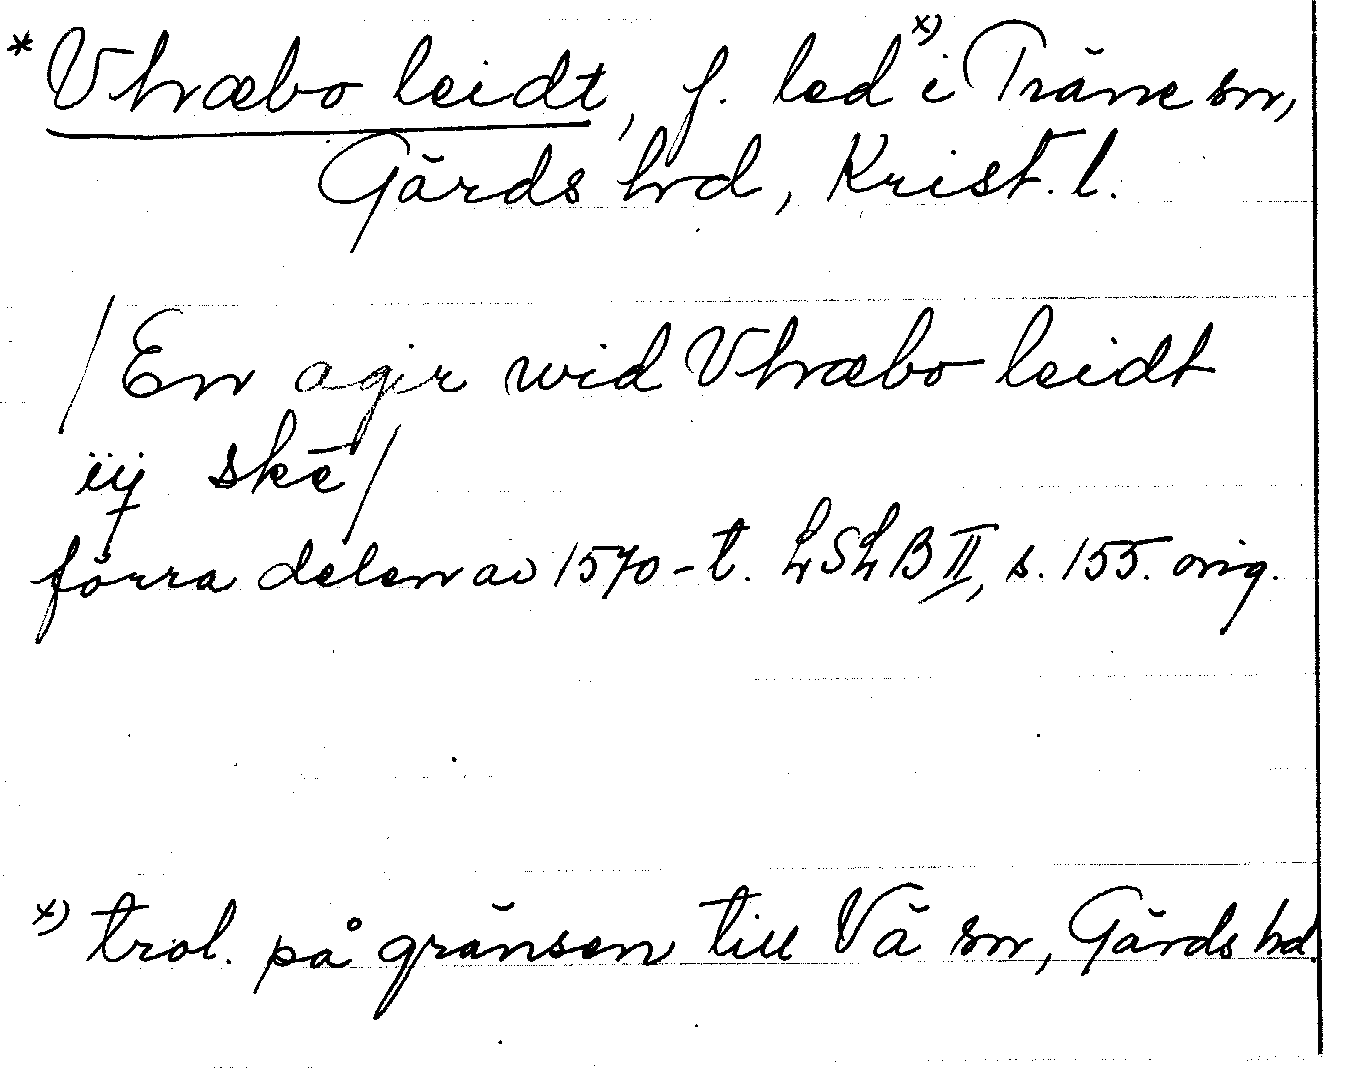 * Vhræbo leidt, f. led x) i Träne sn,
Gärds hd, Krist. l.
/En agir wid Vhræbo leidt
iij skē/
förra delen av 1570-t. LSLB II, s. 155. orig.
x) trol. på gränsen till Vä sn, Gärds hd.